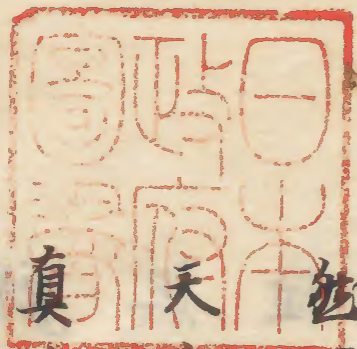 日本
政府
圖書
天
真